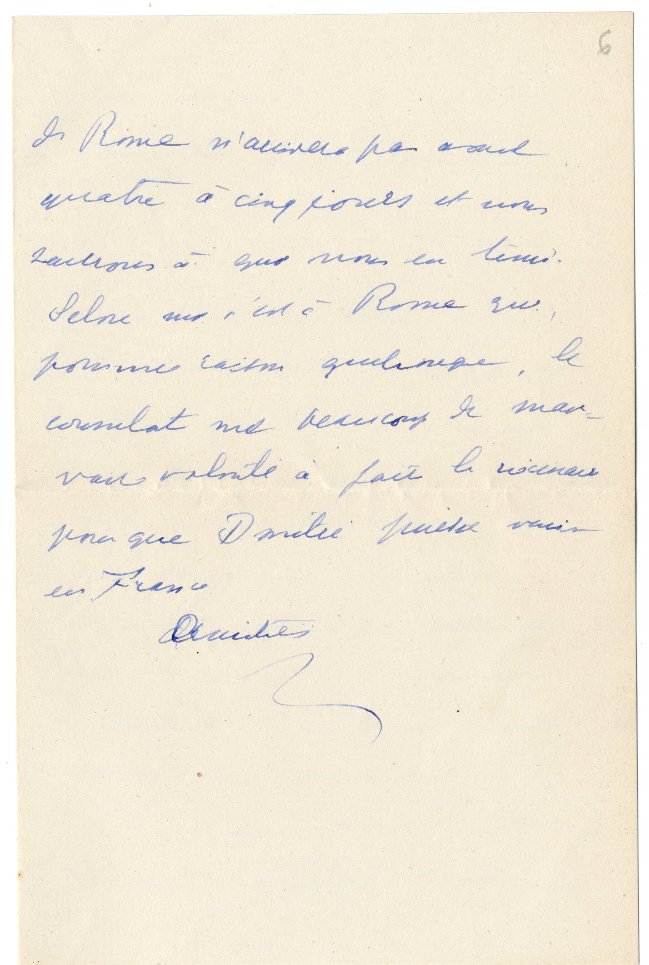 6
de Rome n'arrivera pas avant
quatre à cinq jours et nous
saurons à quoi nous en tenir.
Selon moi c'est à Rome que,
pour une raison quelconque, le
consulat met beaucoup de mau-
vaise volonté à faire le nécessaire
pour que Dmitri puisse venir
en France
Amitiés